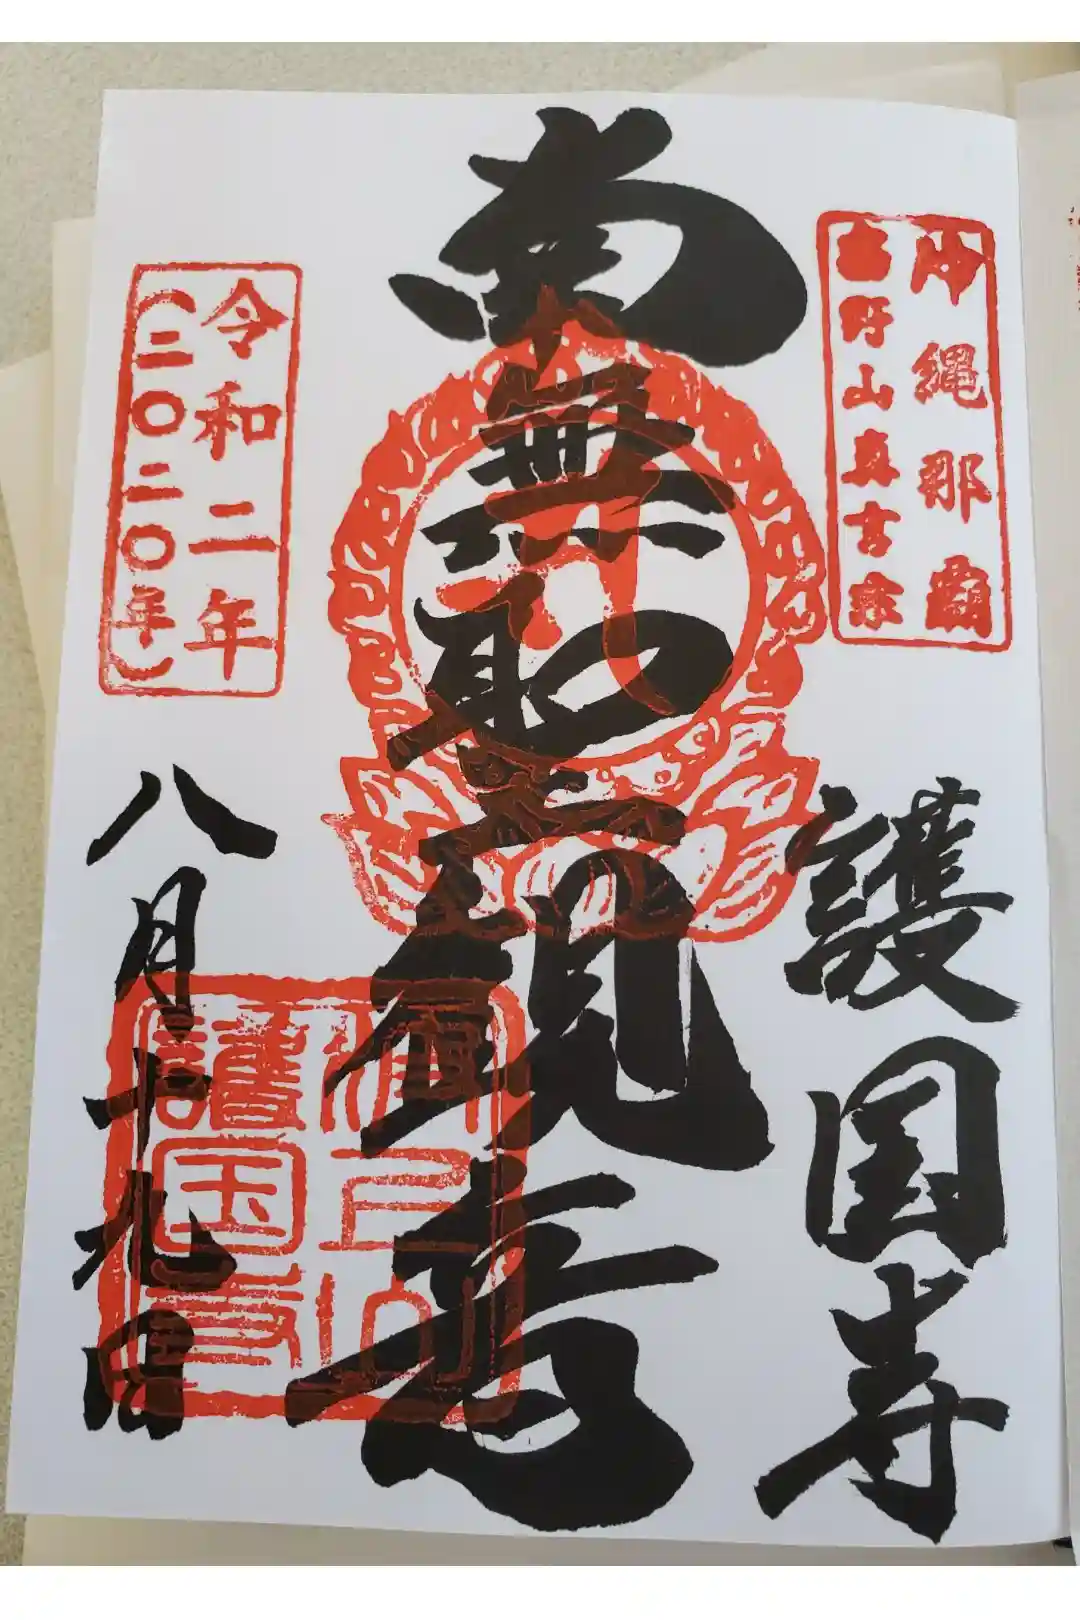 沖縄那覇
高野山真言宗
護国寺
南無聖観音
令和二年
(二〇二〇年)
八月十九日
護国寺